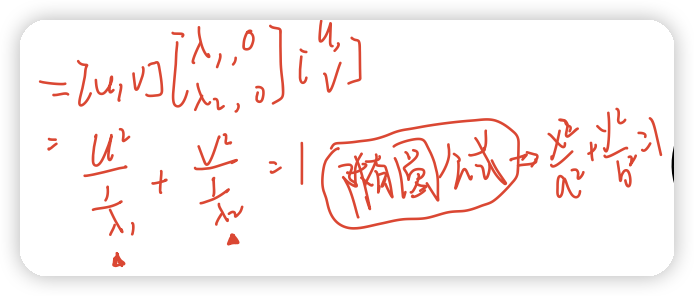 = [u, v] [λ₁, 0 [u,
λ₂, 0] v]
= u²/(1/λ₁) + v²/(1/λ₂) = 1 椭圆公式 → x²/a² + y²/b² = 1